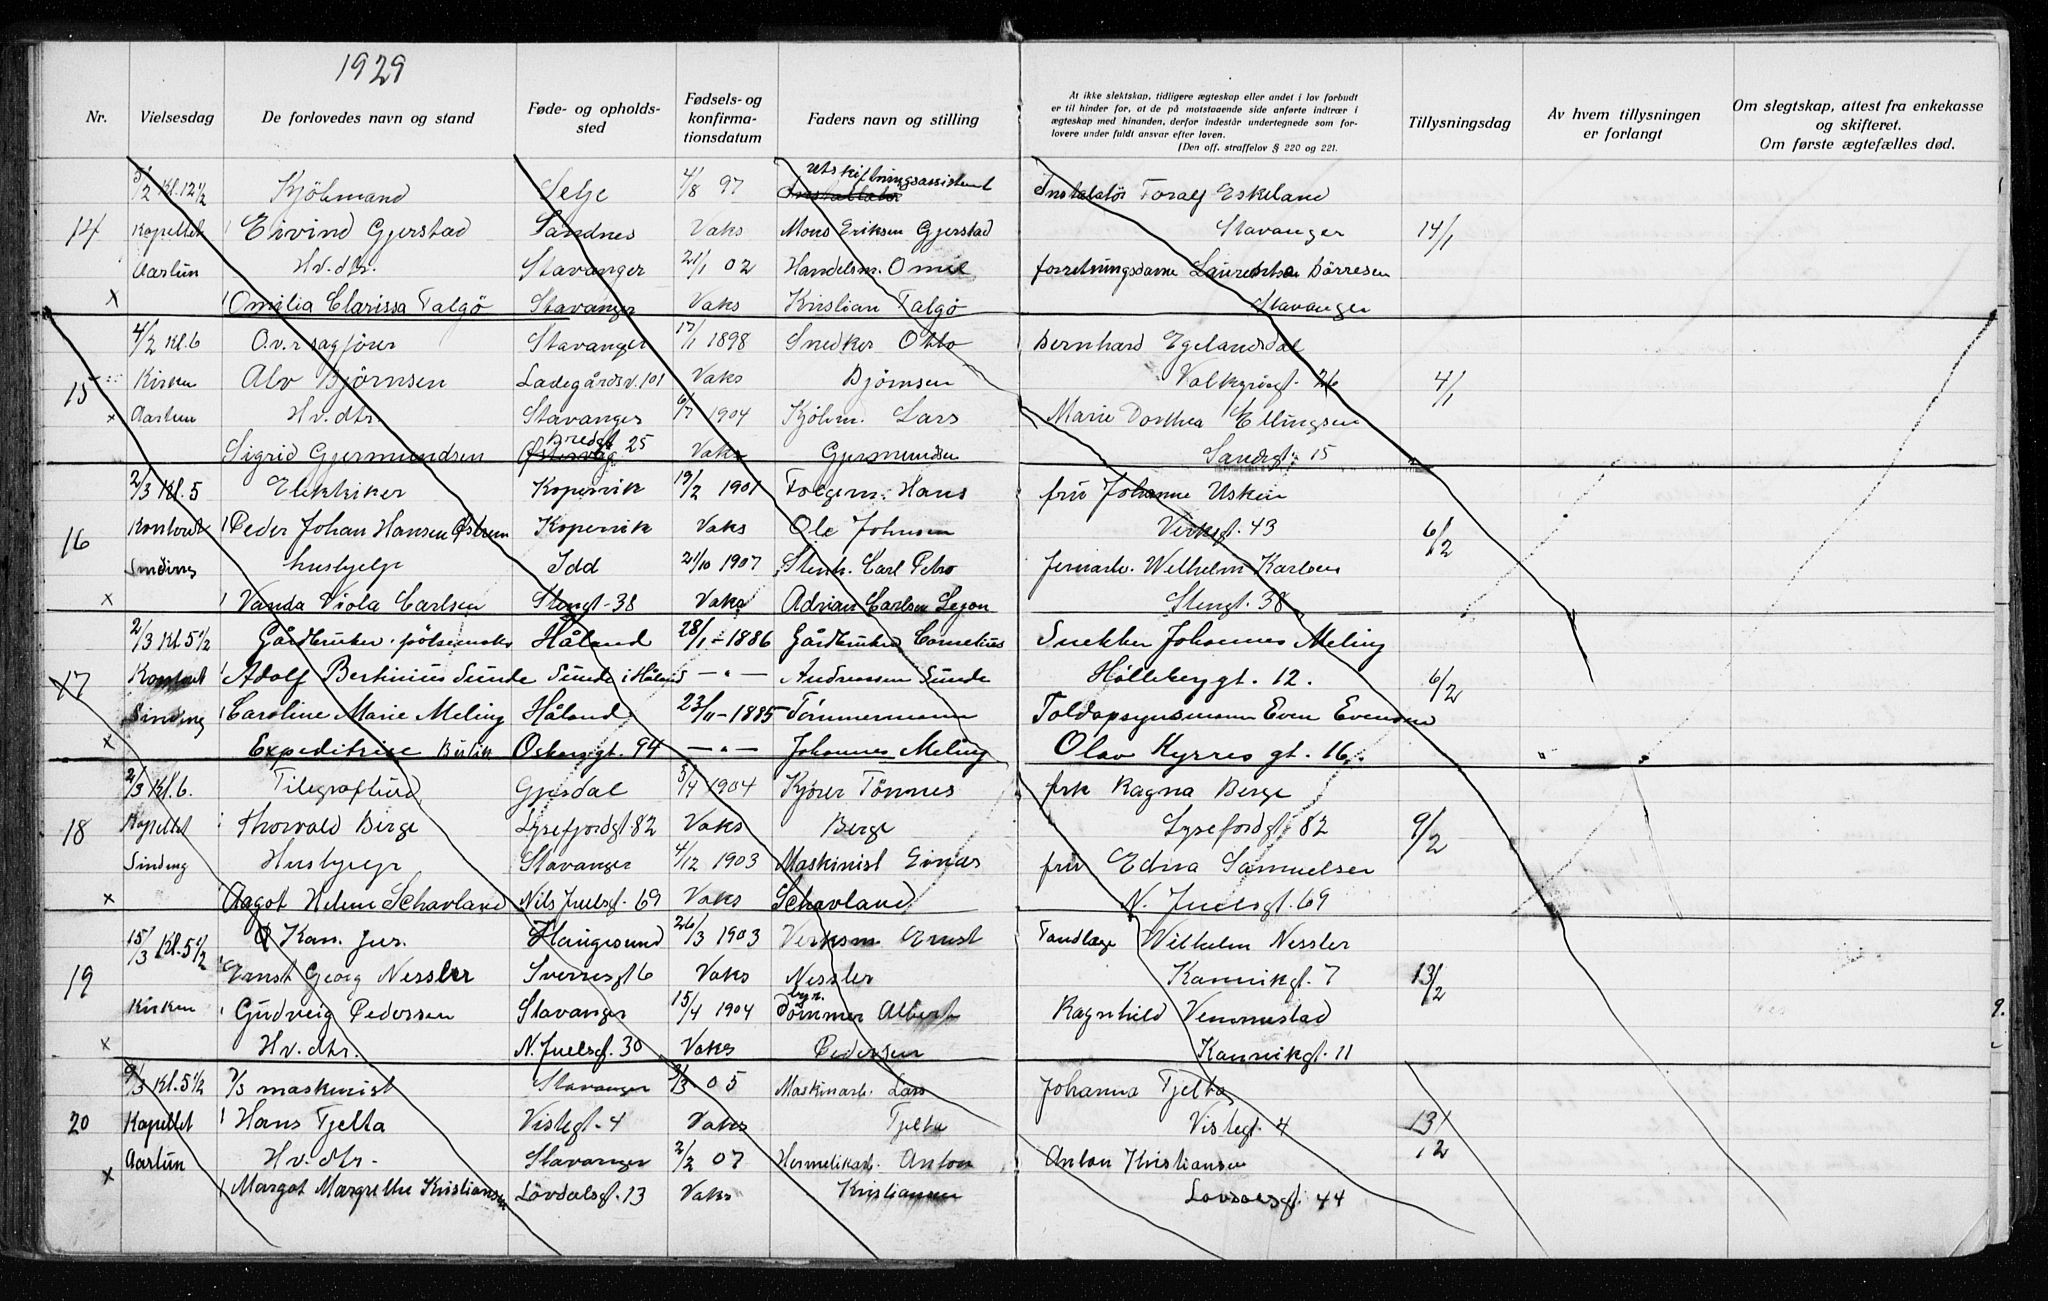 1929
Nr. Vielsesdag De forlovedes navn og stand Føde- og opholdssted Fødsels- og konfirmationsdatum Faders navn og stilling
At ikke slektskap, tidligere ægteskap eller andet i lov forbudt
er til hinder for, at de på motstaaende side anførte indtrær i
ægteskap med hinanden, derfor indestår undertegnede som forlovere under fuldt ansvar efter loven.
(Den off. straffelov § 220 og 221.
Tillysningsdag Av hvem tillysningen er forlangt
Om slegtskap, attest fra enkekasse og skifteret.
Om første ægtefælles død.
5/2 Kl. 12½ Kjöbmand Selje 4/8 97 Utskiftningsassistent Installatör Toralf Eskeland
14 Kapellet Eivind Gjerstad Sandnes Vaks Mons Eriksen Gjerstad Stavanger 14/1
Aarlun Hv. dtr. Stavanger 21/1 02 Handelsm. Omil forretningsdame Børresen
x Omilia Clarissa Talgö Stavanger Vaks Kristian Talgö Stavanger
4/2 Kl. 6 O.r.sagfører Stavanger 17/1 1898 Snedker Otto Bernhard Egelandsdal
15 Kirken Alv Bjørnsen Ladegårdsv. 101 Vaks Bjørnsen Valkyriegt. 26 4/1
x Aarlun Hv. dtr. Stavanger 6/17 1904 Kjöbm. Lars Marie Dorthea Ellingsen
Sigrid Gjermundsen Bredgt 25 Vaks Gjermundsen Sandsgt. 15
2/3 Kl. 5 Elektriker Kopervik 19/2 1901 Hans fru Johanne Usken
16 Kontoret Peder Johan Hansen Østrem Kopervik Vaks Ole Johnsen Verksgt. 43 6/2
Sinding hushjelp Idd 21/10 1907 Stenh. Carl Petro jernarb. Wilhelm Karlsen
x Vanda Viola Carlsen Stengt. 38 Vaks Adrian Carlsen Legon Stengt. 38
2/3 Kl. 5½ Gårdbruker Håland 28/1 - 1886 Gårdbruker Cornelius Snekker Johannes Meling
17 Kontoret Adolf Bertinius Sunde Sunde i Håland — " — Andreassen Sunde Hillebergt. 12. 6/2
Sinding Caroline Marie Meling Håland 23/11 - 1885 Tømmermann Toldopsynsmann Even Evensen
x Expeditrise Butikk Oskarsgt. 94 — " — Johannes Meling Olav Kyrres gt. 16. " "
2/3 Kl. 6. Telegrafbud Gjesdal 5/4 1904 Kjører Tönnes frk Ragna Berge
18 Kapellet Thorvald Berge Lysefjordgt. 82 Vaks Berge Lysefordgt. 82 9/2
Sinding Husbjelp Stavanger 4/12 1903 Maskinist Einar fru Edna Samuelsen
x Aagot Helene Schavland Nils Juelsgt. 69 Vaks Schavland N. Juelsgt. 69
15/3 Kl. 5½ Kan. jur. Haugesund 26/3 1903 Verksm Ernst Tandlæge Wilhelm Nessler
19 Ernst Georg Nessler Sverresgt 6 Vaks Nessler Kannikgt. 7 13/2
Kirken Gudveig Pedersen Stavanger 15/4 1904 byr. Tömmer Albert Ragnhild Vemmestad
x Hv. dtr. N. Juelsgt. 30 Vaks Pedersen Kannikgt. 11
9/3 Kl. 5½ 2/3 maskinist Stavanger 05 Maskinarb. Lars Johanna Tjelta
20 Kapellet Hans Tjelta Vistegt. 4 Vaks Tjelta Vistegt. 4 13/2
Aarlun Hv. dtr. Stavanger 2/2 07 Hermetikarb. Anton Anton Kristiansen
x Margot Margrethe Kristiansen Lövdalsgt. 13 Vaks Kristiansen Lovdalsgt. 44